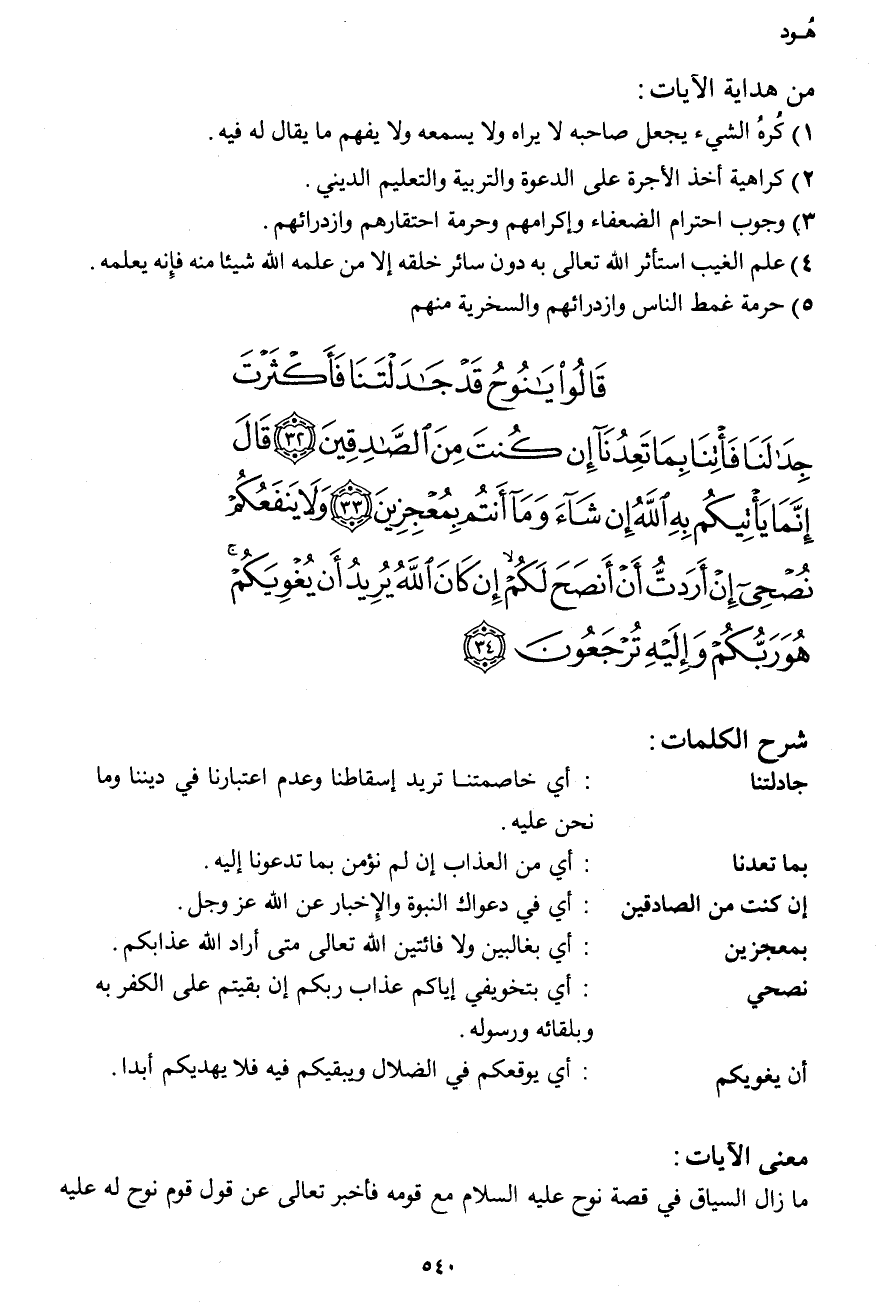 هُود
من هداية الآيات :
١) كُرهُ الشيء يجعل صاحبه لا يراه ولا يسمعه ولا يفهم ما يقال له فيه .
٢) كراهية أخذ الأجرة على الدعوة والتربية والتعليم الديني .
٣) وجوب احترام الضعفاء وإكرامهم وحرمة احتقارهم وازدرائهم .
٤) علم الغيب استأثر الله تعالى به دون سائر خلقه إلا من علمه الله شيئا منه فإنه يعلمه .
٥) حرمة غمط الناس وازدرائهم والسخرية منهم
قَالُوا۟ يَٰنُوحُ قَدْ جَٰدَلْتَنَا فَأَكْثَرْتَ
جِدَٰلَنَا فَأْتِنَا بِمَا تَعِدُنَآ إِن كُنتَ مِنَ ٱلصَّٰدِقِينَ ٣٢ قَالَ
إِنَّمَا يَأْتِيكُم بِهِ ٱللَّهُ إِن شَآءَ وَمَآ أَنتُم بِمُعْجِزِينَ ٣٣ وَلَا يَنفَعُكُمْ
نُصْحِىٓ إِنْ أَرَدتُّ أَنْ أَنصَحَ لَكُمْ إِن كَانَ ٱللَّهُ يُرِيدُ أَن يُغْوِيَكُمْ ۚ
هُوَ رَبُّكُمْ وَإِلَيْهِ تُرْجَعُونَ ٣٤
شرح الكلمات :
جادلتنا : أي خاصمتنا تريد إسقاطنا وعدم اعتبارنا في ديننا وما
نحن عليه .
بما تعدنا : أي من العذاب إن لم نؤمن بما تدعونا إليه .
إن كنت من الصادقين : أي في دعواك النبوة والإخبار عن الله عز وجل .
بمعجزين : أي بغالبين ولا فائتين الله تعالى متى أراد الله عذابكم .
نصحي : أي بتخويفي إياكم عذاب ربكم إن بقيتم على الكفر به
وبلقائه ورسوله .
أن يغويكم : أي يوقعكم في الضلال ويبقيكم فيه فلا يهديكم أبدا .
معنى الآيات :
ما زال السياق في قصة نوح عليه السلام مع قومه فأخبر تعالى عن قول قوم نوح له عليه
٥٤٠